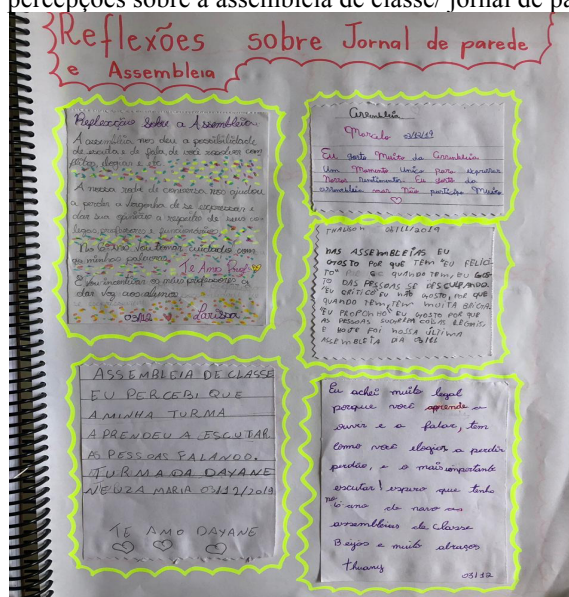 percepções sobre a assembleia de classe/ jornal de pa
Reflexões sobre Jornal de parede
e Assembleia
Reflexção Sobre a Assembleia
A assembleia nos deu a possibilidade
de escuta e de fala de você resolver com
A nossa roda de conversa nos ajudou
a perder a vergonha de se expressar e
dar sua opinião a respeito de seus co-
legas professores e funcionários
No futuro vou tomar cuidado com
as minhas palavras
Te Amo Prof
E vou incentivar os meus professores a
dar voz aos alunos
Larissa
Assembleia
Marcelo
Eu gosto muito da assembleia
Um Momento único para expressar
Nossos sentimentos. Eu gosto da
assembleia mas não participo Muito
NAS ASSEMBLEIAS EU
GOSTO POR QUE TEM "EU FELICI-
TO" QUANDO TEM, EU GOS-
TO DAS PESSOAS SE DESCULPANDO.
"EU CRITICO" EU NÃO GOSTO, POR QUE
QUANDO TEM, TEM MUITA BRIGA.
"EU PROPONHO" EU GOSTO POR QUE
AS PESSOAS SUGEREM COISAS LEGAIS.
E HOJE FOI NOSSA ÚLTIMA
ASSEMBLEIA DIA
ASSEMBLEIA DE CLASSE
EU PERCEBI QUE
A MINHA TURMA
APRENDEU A ESCUTAR
AS PESSOAS FALANDO.
TURMA DA DAYANE
NEUZA MARIA 03/12/2019
TE AMO DAYANE
Eu achei muito legal
porque você aprende a
ouvir e a falar, tem
como você elogiar a pedir
perdão, e o mais importante
escutar! espero que tenha
no 6º ano de novo as
assembleias de classe
Beijos e muito abraços
Thuany
03/12